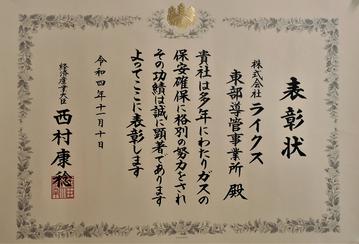 表彰状
株式会社ライクス
東部導管事業所 殿
貴社は多年にわたりガスの
保安確保に格別の努力をされ
その功績は誠に顕著であります
よってここに表彰します
令和四年十一月十日
経済産業大臣
西村康稔